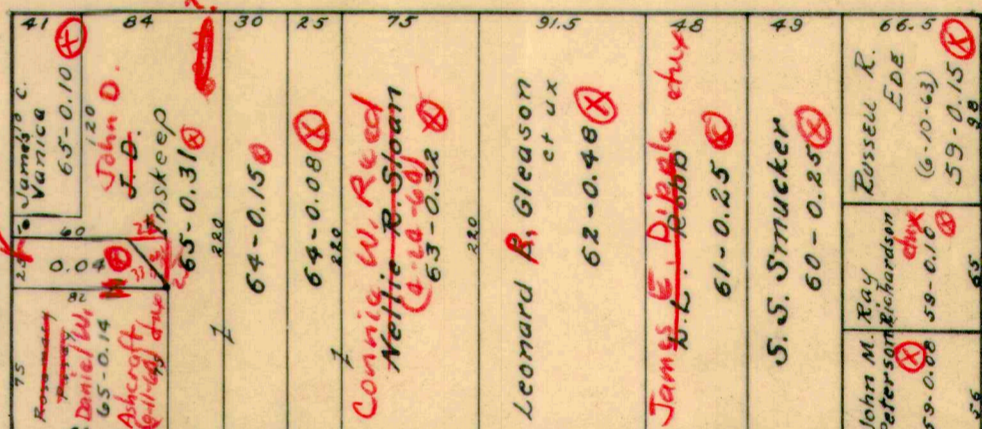 41
84
30
25
75
91.5
48
49
66.5
James C.
Vanica
65-0.10
X
120
John D.
J. D.
Inskeep
65-0.31
X
220
60
0.04
X
82
33
75
Daniel W.
65-0.14
Ashcraft
etux
64-0.15
X
64-0.08
X
220
Connie W. Reed
Nellie R. Sloan
(4-20-60)
63-0.32
X
220
Leonard R. Gleason
et ux
62-0.48
X
James E. Dipple etux
D.L. Robb
61-0.25
X
S.S. Smucker
60-0.25
X
Russell R.
EDE
(6-10-63)
59-0.15
X
98
Ray
Richardson
etux
59-0.10
X
65
John M.
Peterson
X
59-0.08
56